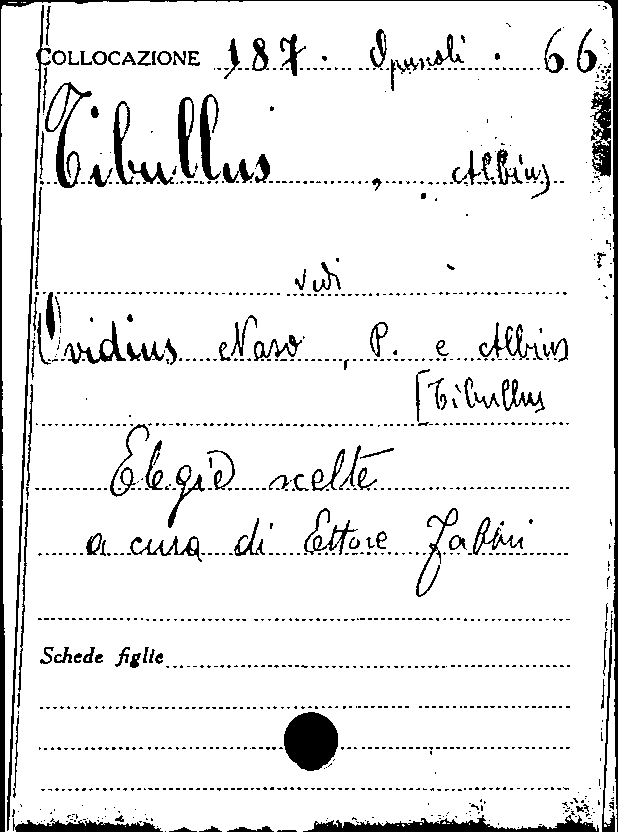 COLLOCAZIONE 187. Opuscoli. 66
Tibullus, Albius
vedi
Ovidius Naso, P. e Albius
[Tibullus
Elegie scelte
a cura di Ettore Fabbri
Schede figlie